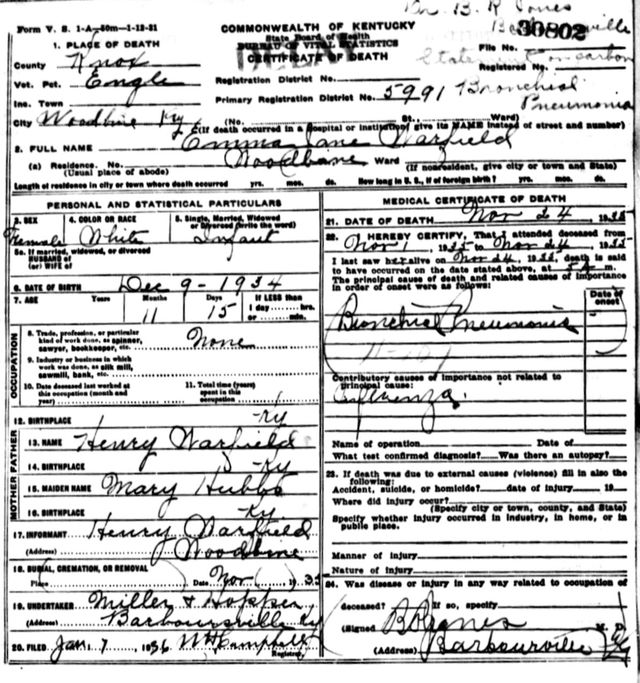 Form V. S. 1-A—50m—1-13-31
Dr. B. R. Jones
COMMONWEALTH OF KENTUCKY
State Board of Health
BUREAU OF VITAL STATISTICS
CERTIFICATE OF DEATH
30802
File No.
Registered No.
1. PLACE OF DEATH
County Knox
Registration District No.
Vot. Pct. Engle
Inc. Town Primary Registration District No. 5991
Bronchial
Pneumonia
City Woodbine Ky (No. St., Ward)
(If death occurred in a hospital or institution, give its NAME instead of street and number)
2. FULL NAME Emma Jane Warfield
(a) Residence. No. Woodbine Ward
(Usual place of abode) (If nonresident, give city or town and State)
Length of residence in city or town where death occurred yrs. mos. ds. How long in U. S., if of foreign birth? yrs. mos. ds.
PERSONAL AND STATISTICAL PARTICULARS
3. SEX 4. COLOR OR RACE 5. Single, Married, Widowed or Divorced (write the word)
Female White Infant
5a. If married, widowed, or divorced
HUSBAND of
(or) WIFE of
6. DATE OF BIRTH Dec 9 - 1934
7. AGE Years Months Days If LESS than
11 15 1 day hrs.
or min.
OCCUPATION
8. Trade, profession, or particular kind of work done, as spinner, sawyer, bookkeeper, etc. None
9. Industry or business in which work was done, as silk mill, sawmill, bank, etc.
10. Date deceased last worked at this occupation (month and year)
11. Total time (years) spent in this occupation
12. BIRTHPLACE Ky
FATHER
13. NAME Henry Warfield
14. BIRTHPLACE Ky
MOTHER
15. MAIDEN NAME Mary Hubbs
16. BIRTHPLACE Ky
17. INFORMANT Henry Warfield
(Address) Woodbine
18. BURIAL, CREMATION, OR REMOVAL
Place Date Nov 1935
19. UNDERTAKER Miller & Hopper
(Address) Barboursville Ky
20. FILED Jan 7 1936
Registrar
MEDICAL CERTIFICATE OF DEATH
21. DATE OF DEATH Nov 24, 1935
22. I HEREBY CERTIFY, That I attended deceased from
Nov 1 1935 to Nov 24 1935
I last saw her alive on Nov 24, 1935, death is said
to have occurred on the date stated above, at 5 A m.
The principal cause of death and related causes of importance
in order of onset were as follows:
Date of onset
Bronchial Pneumonia
Contributory causes of importance not related to
principal cause:
Influenza.
Name of operation Date of
What test confirmed diagnosis? Was there an autopsy?
23. If death was due to external causes (violence) fill in also the
following:
Accident, suicide, or homicide? date of injury 19
Where did injury occur?
(Specify city or town, county, and State)
Specify whether injury occurred in industry, in home, or in
public place.
Manner of injury
Nature of injury
24. Was disease or injury in any way related to occupation of
deceased? If so, specify
(Signed) B R Jones M. D.
(Address) Barbourville Ky